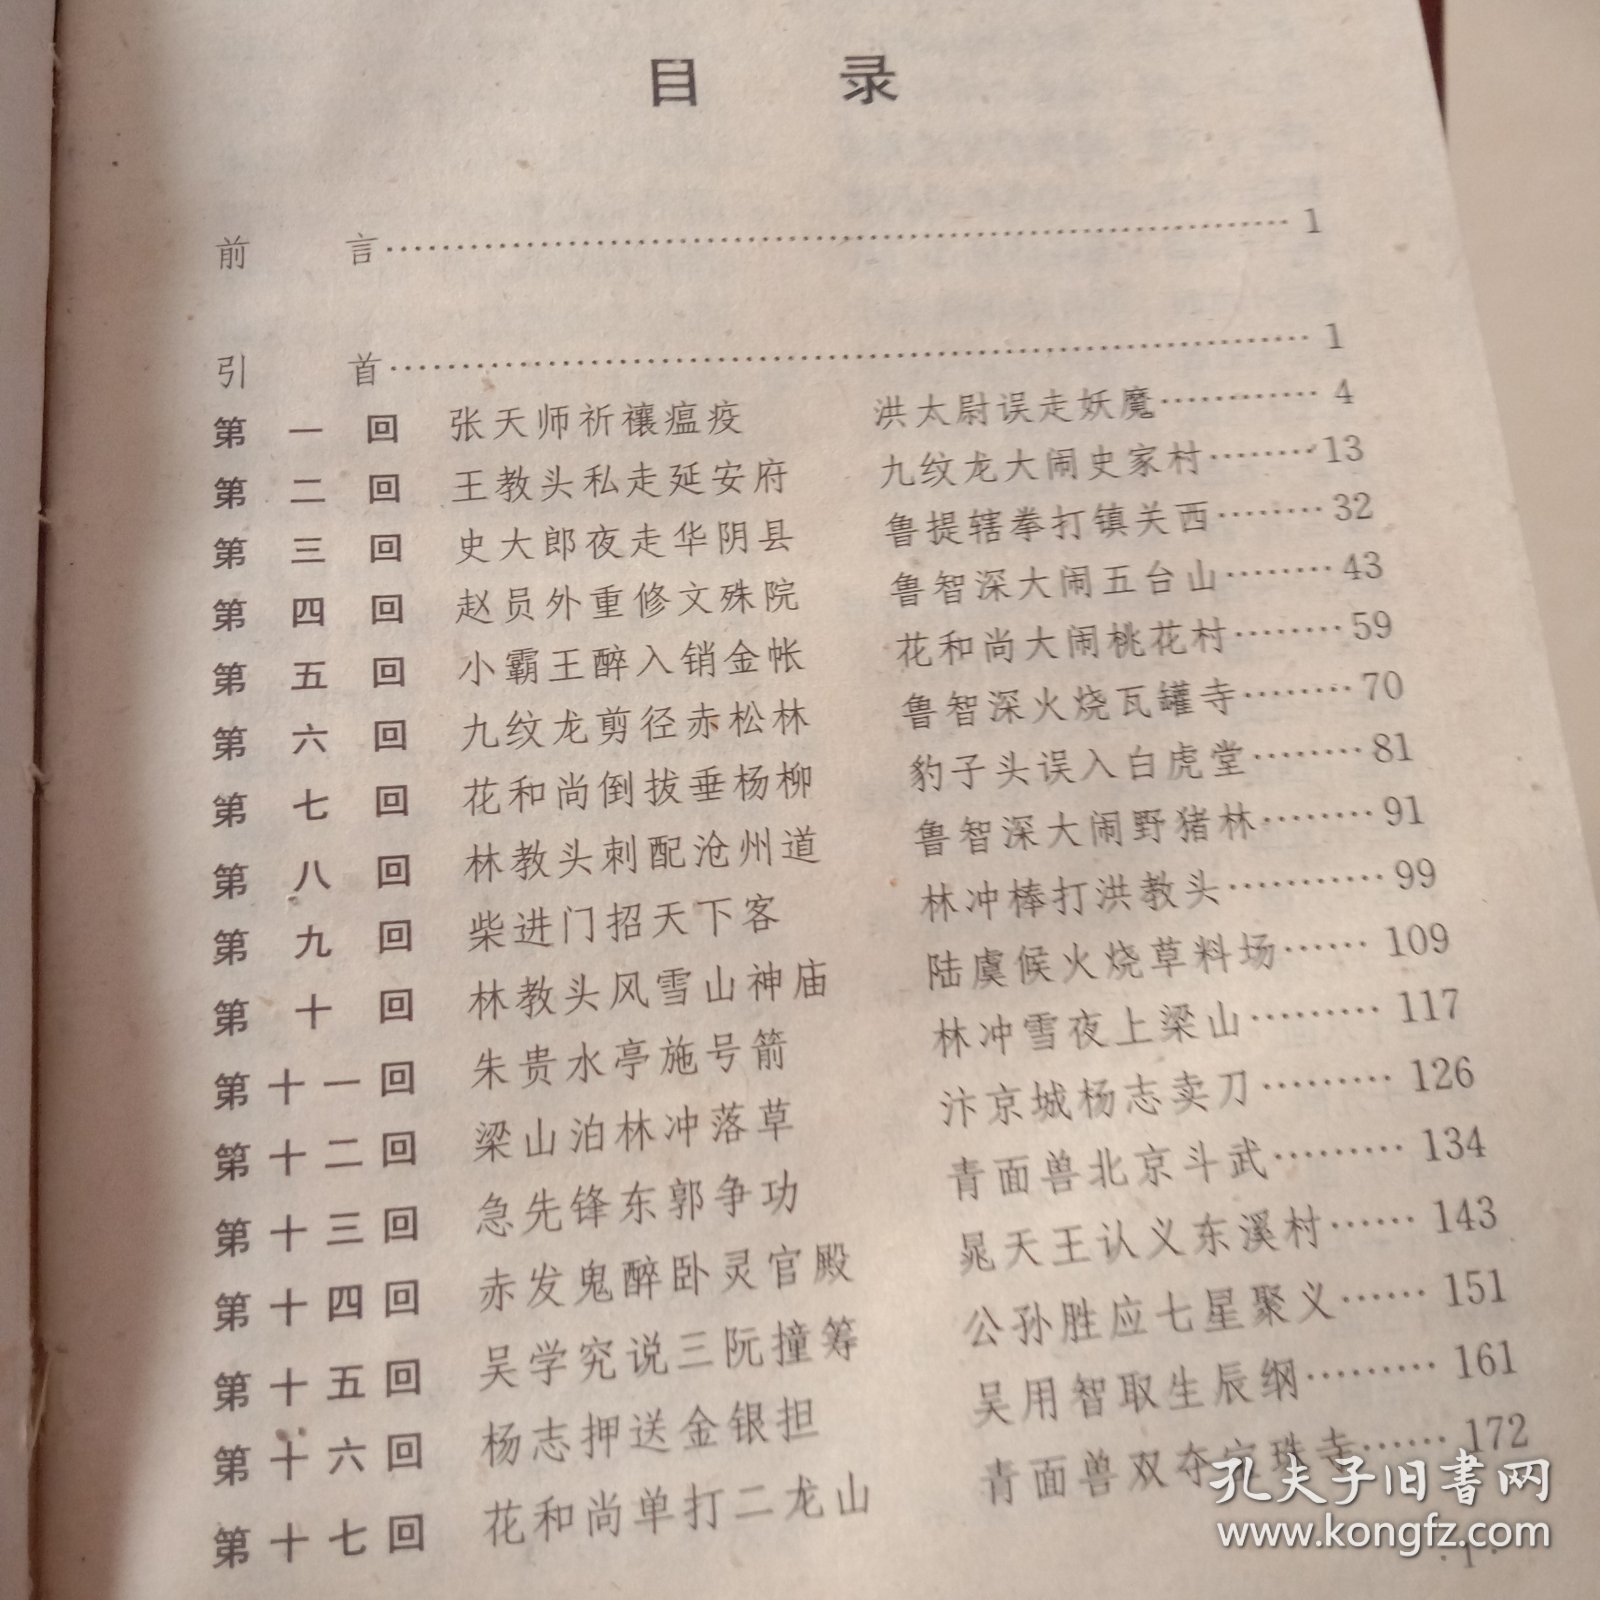 目 录
前 言……………………………………………………1
引 首……………………………………………………1
第一回 张天师祈禳瘟疫 洪太尉误走妖魔…………4
第二回 王教头私走延安府 九纹龙大闹史家村………13
第三回 史大郎夜走华阴县 鲁提辖拳打镇关西………32
第四回 赵员外重修文殊院 鲁智深大闹五台山………43
第五回 小霸王醉入销金帐 花和尚大闹桃花村………59
第六回 九纹龙剪径赤松林 鲁智深火烧瓦罐寺………70
第七回 花和尚倒拔垂杨柳 豹子头误入白虎堂………81
第八回 林教头刺配沧州道 鲁智深大闹野猪林………91
第九回 柴进门招天下客 林冲棒打洪教头…………99
第十回 林教头风雪山神庙 陆虞候火烧草料场……109
第十一回 朱贵水亭施号箭 林冲雪夜上梁山………117
第十二回 梁山泊林冲落草 汴京城杨志卖刀………126
第十三回 急先锋东郭争功 青面兽北京斗武………134
第十四回 赤发鬼醉卧灵官殿 晁天王认义东溪村……143
第十五回 吴学究说三阮撞筹 公孙胜应七星聚义……151
第十六回 杨志押送金银担 吴用智取生辰纲………161
第十七回 花和尚单打二龙山 青面兽双夺宝珠寺……172
孔夫子旧书网
www.kongfz.com
·1·